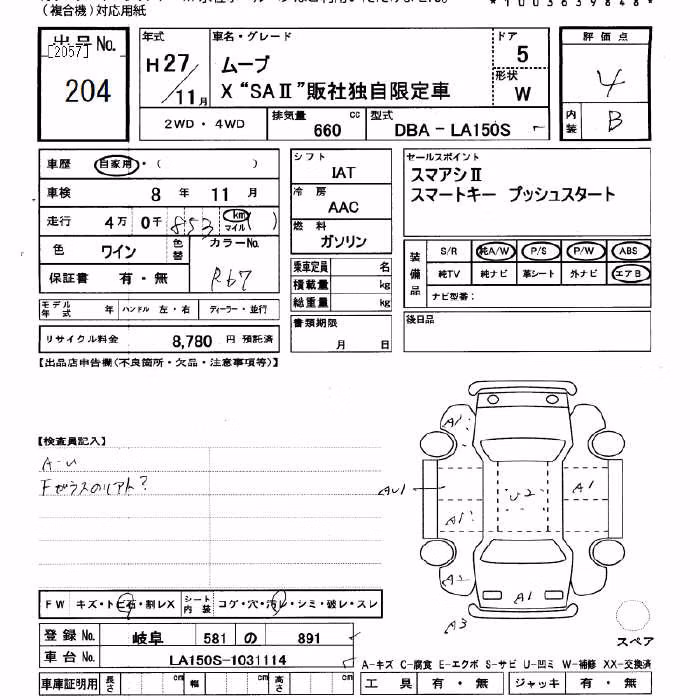 (複合機)対応用紙
*1003639848*
出品No.
[2057]
204
年式
H27/11月
車名・グレード
ムーブ
X “SAⅡ”販社独自限定車
ドア
5
形状
W
評価点
4
内装
B
2WD・4WD
排気量 660 cc
型式 DBA-LA150S
車歴 自家用・( )
車検 8年 11月
走行 4万 0千 853 km マイル ( )
色 ワイン 色替 カラーNo. R67
保証書 有・無
モデル年式 年 ハンドル 左・右 ディーラー・並行
リサイクル料金 8,780 円 預託済
シフト
IAT
冷房
AAC
燃料
ガソリン
乗車定員 名
積載量 kg
総重量 kg
書類期限
月 日
セールスポイント
スマアシⅡ
スマートキー プッシュスタート
装備品
S/R 純A/W P/S P/W ABS
純TV 純ナビ 革シート 外ナビ エアB
ナビ型番:
後日品
【出品店申告欄(不良箇所・欠品・注意事項等)】
【検査員記入】
A-U
Fガラスのリアト?
A1
AU1
U2
A1
A1
A2
A1
A3
スペア
FW キズ・トビ石・割レX シート内装 コゲ・穴・汚レ・シミ・破レ・スレ
登録No. 岐阜 581 の 891
車台No. LA150S-1031114
車庫証明用 長さ cm 幅 cm 高さ cm
A-キズ C-腐食 E-エクボ S-サビ U-凹ミ W-補修 XX-交換済
工具 有・無 ジャッキ 有・無